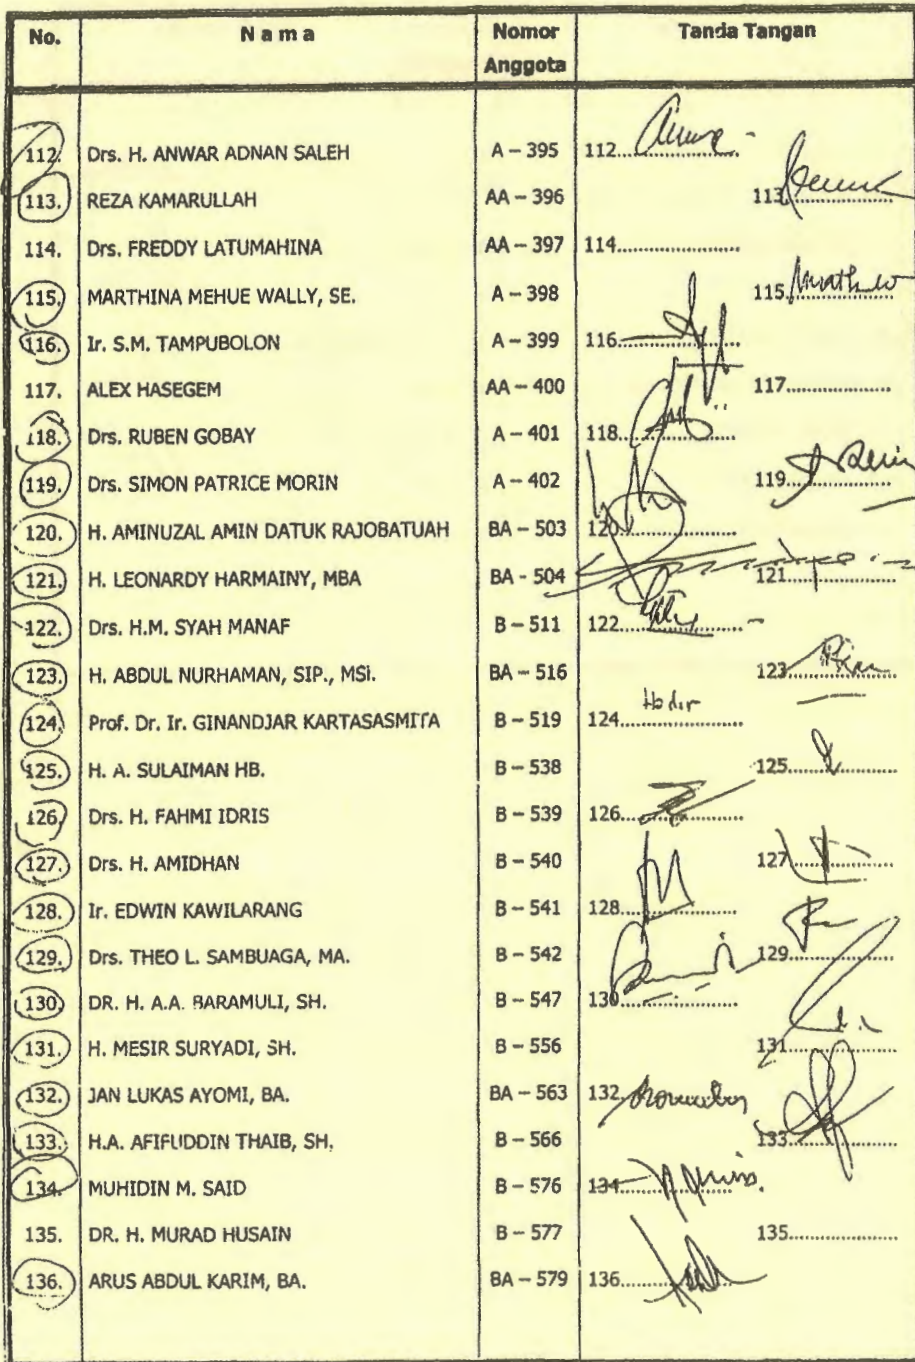 No. N a m a Nomor Anggota Tanda Tangan
112. Drs. H. ANWAR ADNAN SALEH A – 395 112..................
113. REZA KAMARULLAH AA – 396 113..................
114. Drs. FREDDY LATUMAHINA AA – 397 114..................
115. MARTHINA MEHUE WALLY, SE. A – 398 115..................
116. Ir. S.M. TAMPUBOLON A – 399 116..................
117. ALEX HASEGEM AA – 400 117..................
118. Drs. RUBEN GOBAY A – 401 118..................
119. Drs. SIMON PATRICE MORIN A – 402 119..................
120. H. AMINUZAL AMIN DATUK RAJOBATUAH BA – 503 120..................
121. H. LEONARDY HARMAINY, MBA BA - 504 121..................
122. Drs. H.M. SYAH MANAF B – 511 122..................
123. H. ABDUL NURHAMAN, SIP., MSi. BA – 516 123..................
124. Prof. Dr. Ir. GINANDJAR KARTASASMITA B – 519 124.................. Hadir
125. H. A. SULAIMAN HB. B – 538 125..................
126. Drs. H. FAHMI IDRIS B – 539 126..................
127. Drs. H. AMIDHAN B – 540 127..................
128. Ir. EDWIN KAWILARANG B – 541 128..................
129. Drs. THEO L. SAMBUAGA, MA. B – 542 129..................
130. DR. H. A.A. BARAMULI, SH. B – 547 130..................
131. H. MESIR SURYADI, SH. B – 556 131..................
132. JAN LUKAS AYOMI, BA. BA – 563 132.
133. H.A. AFIFUDDIN THAIB, SH. B – 566 133..................
134. MUHIDIN M. SAID B – 576 134..................
135. DR. H. MURAD HUSAIN B – 577 135..................
136. ARUS ABDUL KARIM, BA. BA – 579 136..................